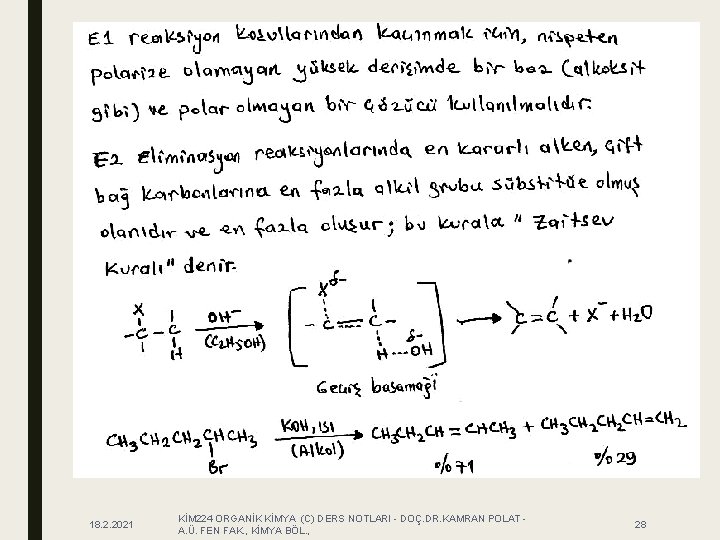 E1 reaksiyon koşullarından kaçınmak için, nispeten
polarize olamayan yüksek derişimde bir baz (alkoksit
gibi) ve polar olmayan bir çözücü kullanılmalıdır.
E2 Eliminasyon reaksiyonlarında en kararlı alken, çift
bağ karbonlarına en fazla alkil grubu sübstitüe olmuş
olanıdır ve en fazla oluşur; bu kurala " Zaitsev
Kuralı" denir.
X
-C-C-
H
OH⁻
(C2H5OH)
Xδ-
-C=C-
δ-
H...OH
C=C + X⁻ + H2O
Geçiş basamağı
CH3CH2CH2CHCH3
Br
KOH, ısı
(Alkol)
CH3CH2CH=CHCH3 + CH3CH2CH2CH=CH2
%71 %29
18.2.2021
KİM224 ORGANİK KİMYA (C) DERS NOTLARI - DOÇ.DR.KAMRAN POLAT -
A.Ü. FEN FAK., KİMYA BÖL.,
28